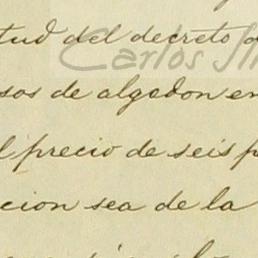 tud del decreto
Carlos
sos de algodon en
l precio de seis
cion sea de la